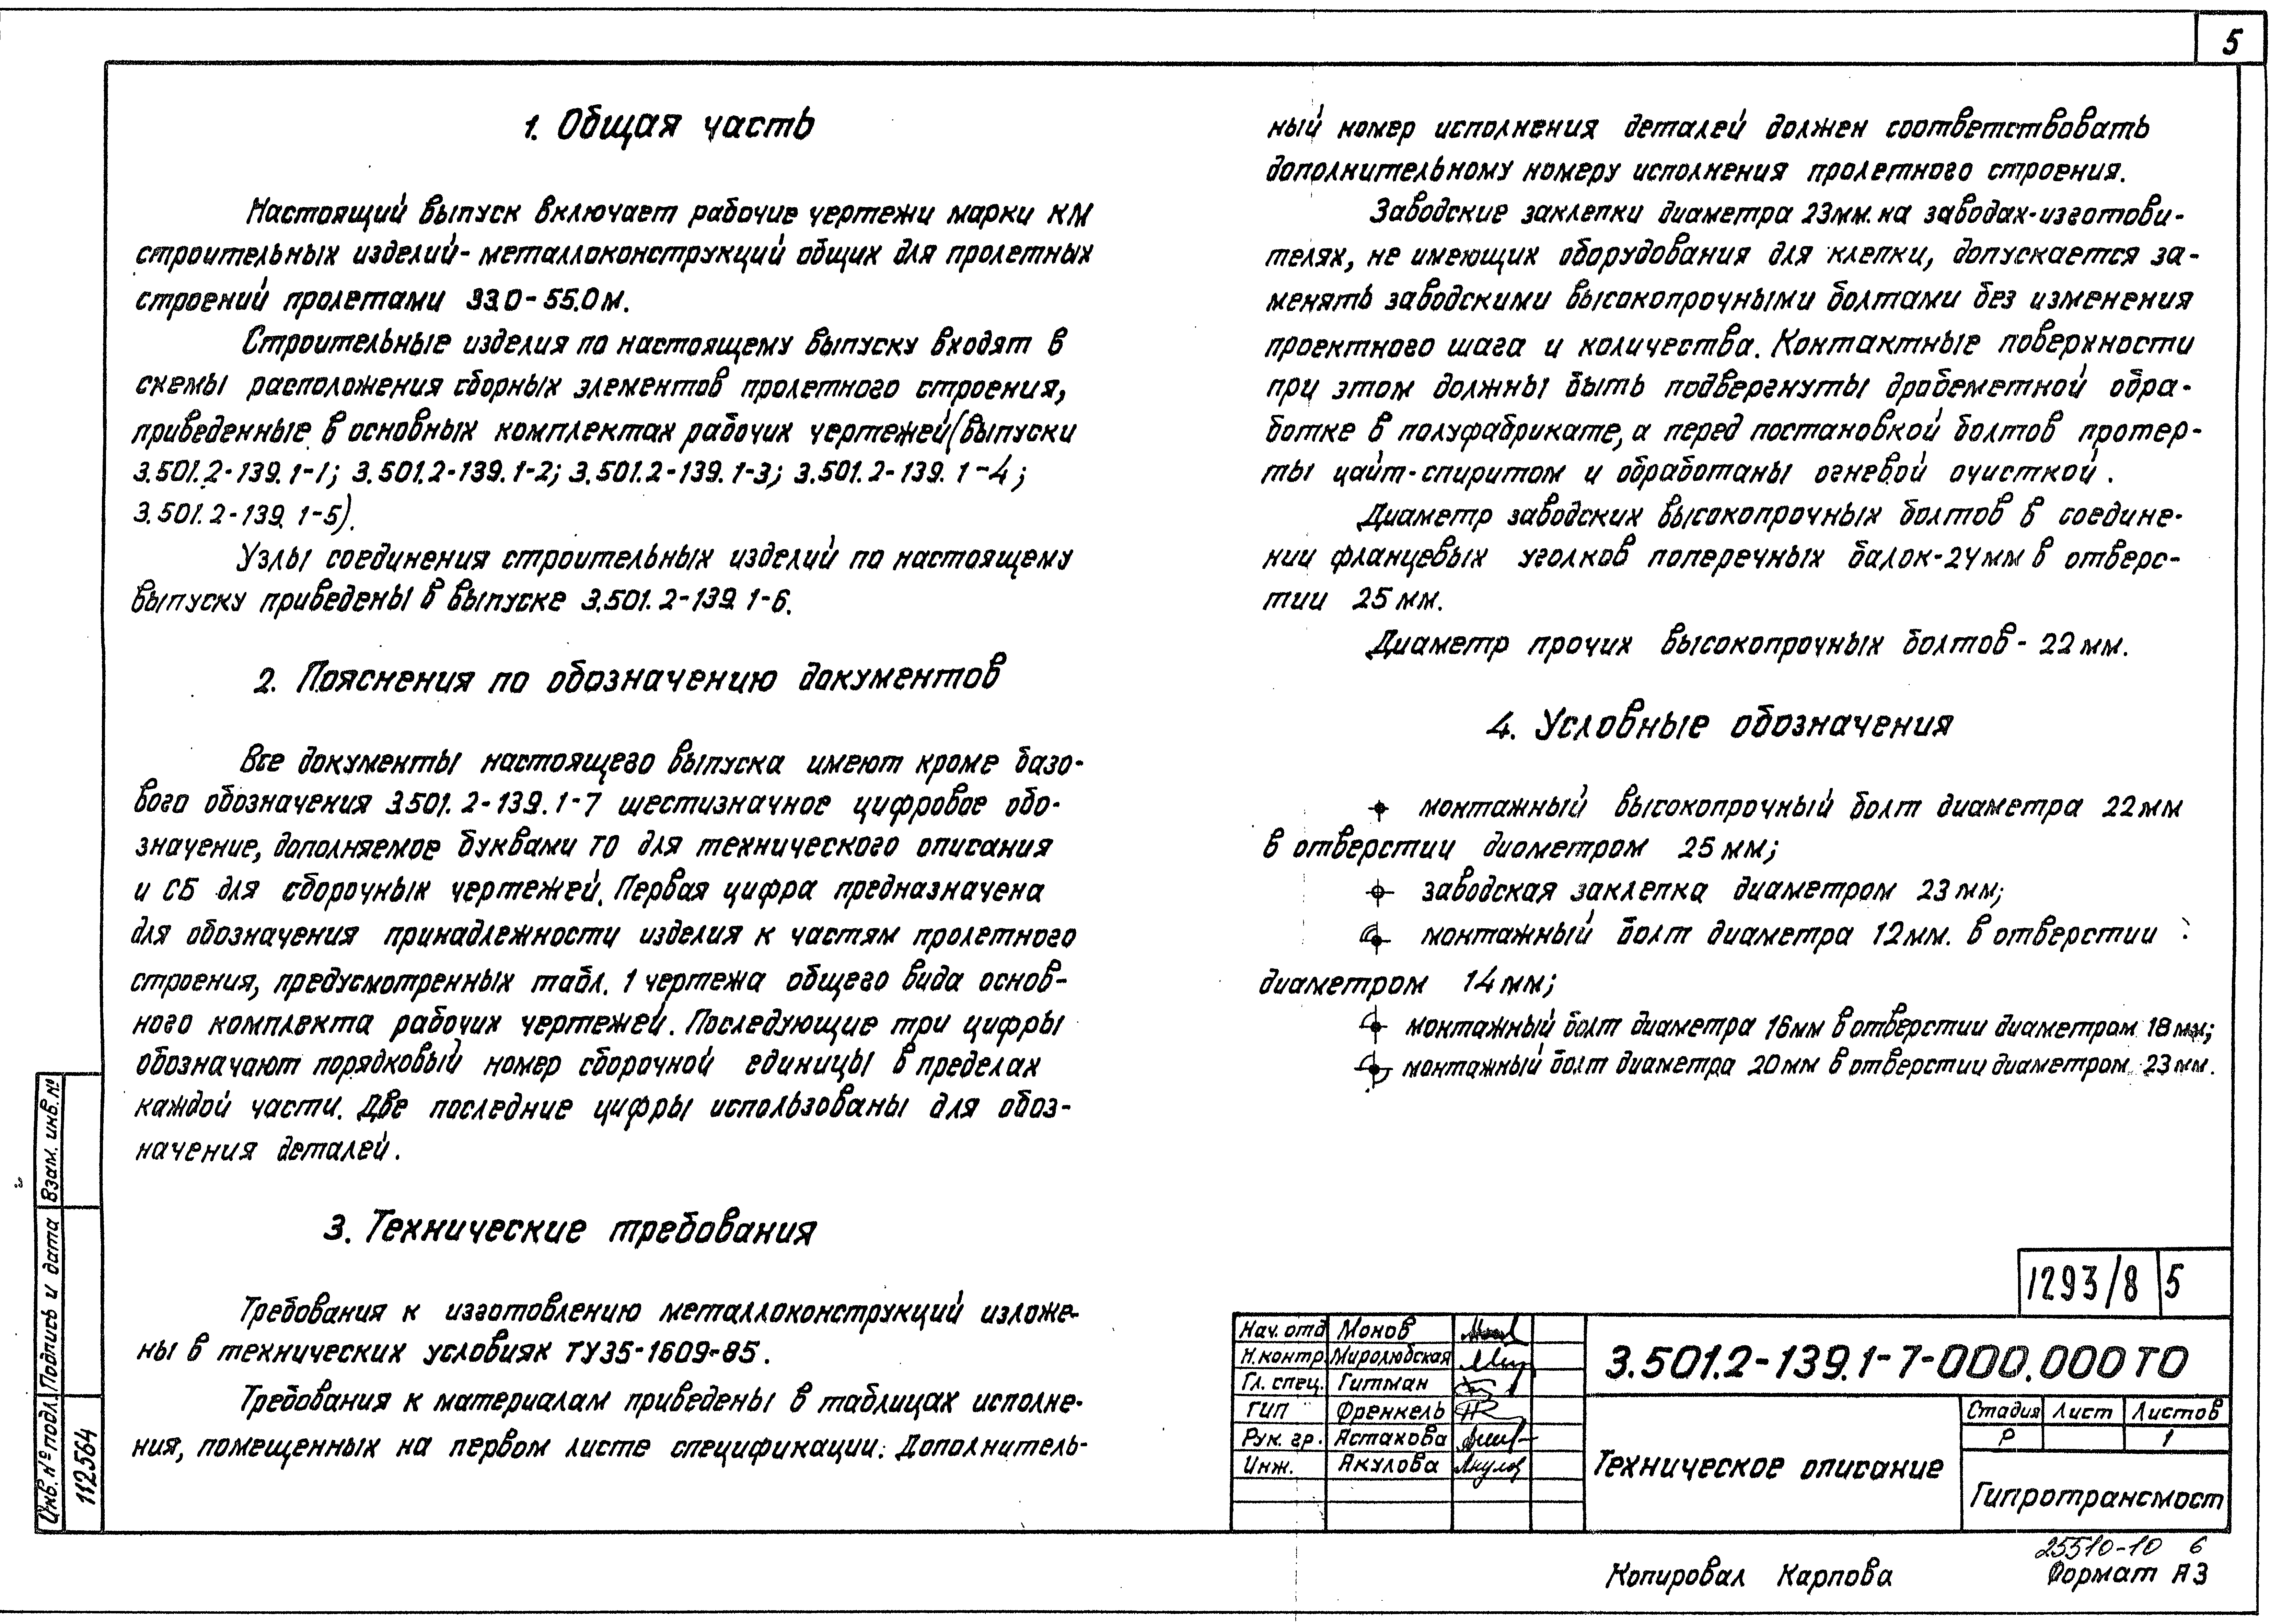 5
1. Общая часть
Настоящий выпуск включает рабочие чертежи марки КМ
строительных изделий-металлоконструкций общих для пролетных
строений пролетами 33.0-55.0м.
Строительные изделия по настоящему выпуску входят в
схемы расположения сборных элементов пролетного строения,
приведенные в основных комплектах рабочих чертежей (выпуски
3.501.2-139.1-1; 3.501.2-139.1-2; 3.501.2-139.1-3; 3.501.2-139.1-4;
3.501.2-139.1-5).
Узлы соединения строительных изделий по настоящему
выпуску приведены в выпуске 3.501.2-139.1-6.
2. Пояснения по обозначению документов
Все документы настоящего выпуска имеют кроме базо-
вого обозначения 3.501.2-139.1-7 шестизначное цифровое обо-
значение, дополняемое буквами ТО для технического описания
и СБ для сборочных чертежей. Первая цифра предназначена
для обозначения принадлежности изделия к частям пролетного
строения, предусмотренных табл. 1 чертежа общего вида основ-
ного комплекта рабочих чертежей. Последующие три цифры
обозначают порядковый номер сборочной единицы в пределах
каждой части. Две последние цифры использованы для обоз-
начения деталей.
3. Технические требования
Требования к изготовлению металлоконструкций изложе-
ны в технических условиях ТУ35-1609-85.
Требования к материалам приведены в таблицах исполне-
ния, помещенных на первом листе спецификации. Дополнитель-
ный номер исполнения деталей должен соответствовать
дополнительному номеру исполнения пролетного строения.
Заводские заклепки диаметра 23мм. на заводах-изготови-
телях, не имеющих оборудования для клепки, допускается за-
менять заводскими высокопрочными болтами без изменения
проектного шага и количества. Контактные поверхности
при этом должны быть подвергнуты дробеметной обра-
ботке в полуфабрикате, а перед постановкой болтов протер-
ты уайт-спиритом и обработаны огневой очисткой.
Диаметр заводских высокопрочных болтов в соедине-
нии фланцевых уголков поперечных балок-24мм в отверс-
тии 25мм.
Диаметр прочих высокопрочных болтов-22мм.
4. Условные обозначения
монтажный высокопрочный болт диаметра 22мм
в отверстии диаметром 25мм;
заводская заклепка диаметром 23мм;
монтажный болт диаметра 12мм. в отверстии
диаметром 14мм;
монтажный болт диаметра 16мм в отверстии диаметром 18мм;
монтажный болт диаметра 20мм в отверстии диаметром 23мм.
Взам. инв.№
Подпись и дата
Инв.№ подл.
112564
1293/8 5
Нач. отд Монов
Н.контр. Миролюбская
Гл. спец. Гитман
ГИП Френкель
Рук. гр. Астахова
Инж. Якулова
3.501.2-139.1-7-000.000 ТО
Техническое описание
Стадия Лист Листов
Р 1
Гипротрансмост
25510-10 6
Копировал Карпова Формат А3